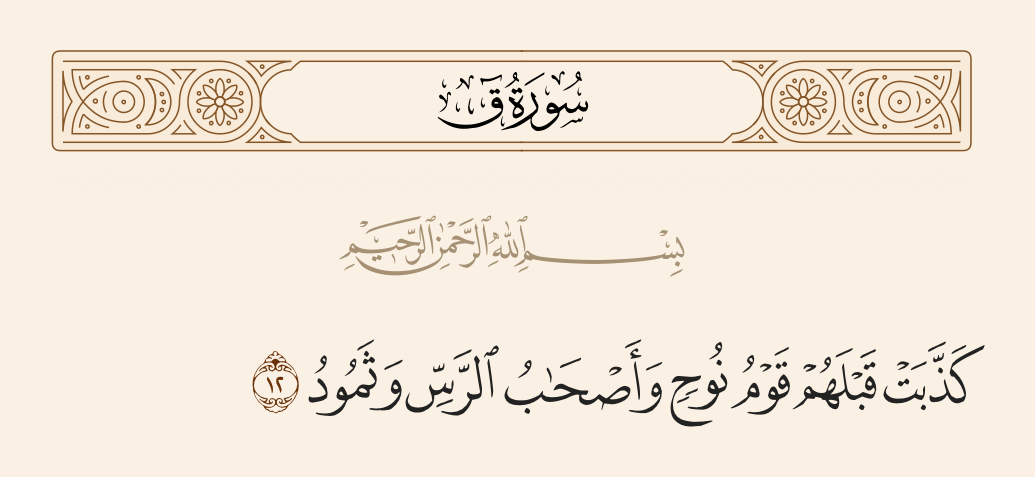 سُورَةُ قٓ
بِسْمِ ٱللَّهِ ٱلرَّحْمَٰنِ ٱلرَّحِيمِ
كَذَّبَتْ قَبْلَهُمْ قَوْمُ نُوحٍ وَأَصْحَٰبُ ٱلرَّسِّ وَثَمُودُ ١٢